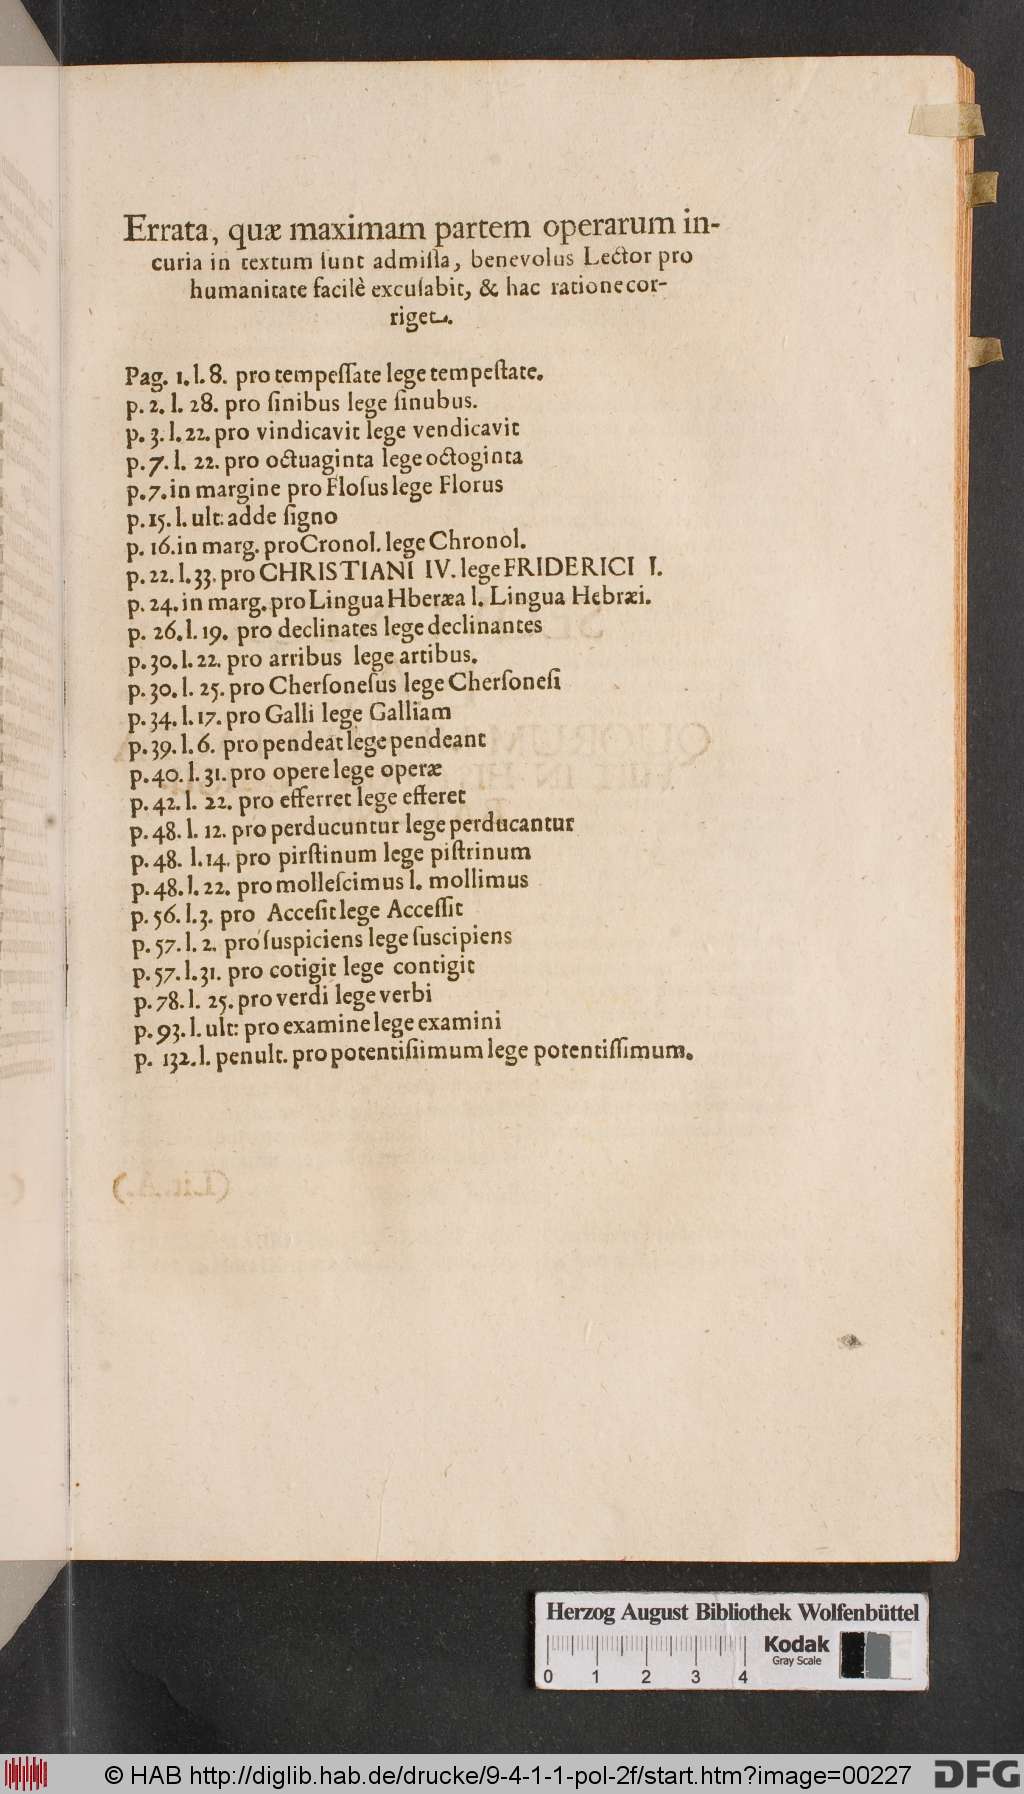 Errata, quæ maximam partem operarum in-
curia in textum ſunt admiſſa, benevolus Lector pro
humanitate facilè excuſabit, & hac ratione cor-
riget.
Pag. 1. l. 8. pro tempeſſate lege tempeſtate.
p. 2. l. 28. pro ſinibus lege ſinubus.
p. 3. l. 22. pro vindicavit lege vendicavit
p. 7. l. 22. pro octuaginta lege octoginta
p. 7. in margine pro Floſus lege Florus
p. 15. l. ult: adde ſigno
p. 16. in marg. pro Cronol. lege Chronol.
p. 22. l. 33. pro CHRISTIANI IV. lege FRIDERICI I.
p. 24. in marg. pro Lingua Hberæa l. Lingua Hebræi.
p. 26. l. 19. pro declinates lege declinantes
p. 30. l. 22. pro arribus lege artibus.
p. 30. l. 25. pro Cherſoneſus lege Cherſoneſi
p. 34. l. 17. pro Galli lege Galliam
p. 39. l. 6. pro pendeat lege pendeant
p. 40. l. 31. pro opere lege operæ
p. 42. l. 22. pro efferret lege efferet
p. 48. l. 12. pro perducuntur lege perducantur
p. 48. l. 14. pro pirſtinum lege piſtrinum
p. 48. l. 22. pro molleſcimus l. mollimus
p. 56. l. 3. pro Acceſit lege Acceſſit
p. 57. l. 2. pro ſuspiciens lege ſuscipiens
p. 57. l. 31. pro cotigit lege contigit
p. 78. l. 25. pro verdi lege verbi
p. 93. l. ult: pro examine lege examini
p. 132. l. penult. pro potentiſiimum lege potentiſſimum.
Herzog August Bibliothek Wolfenbüttel
Kodak
Gray Scale
0 1 2 3 4
© HAB http://diglib.hab.de/drucke/9-4-1-1-pol-2f/start.htm?image=00227
DFG